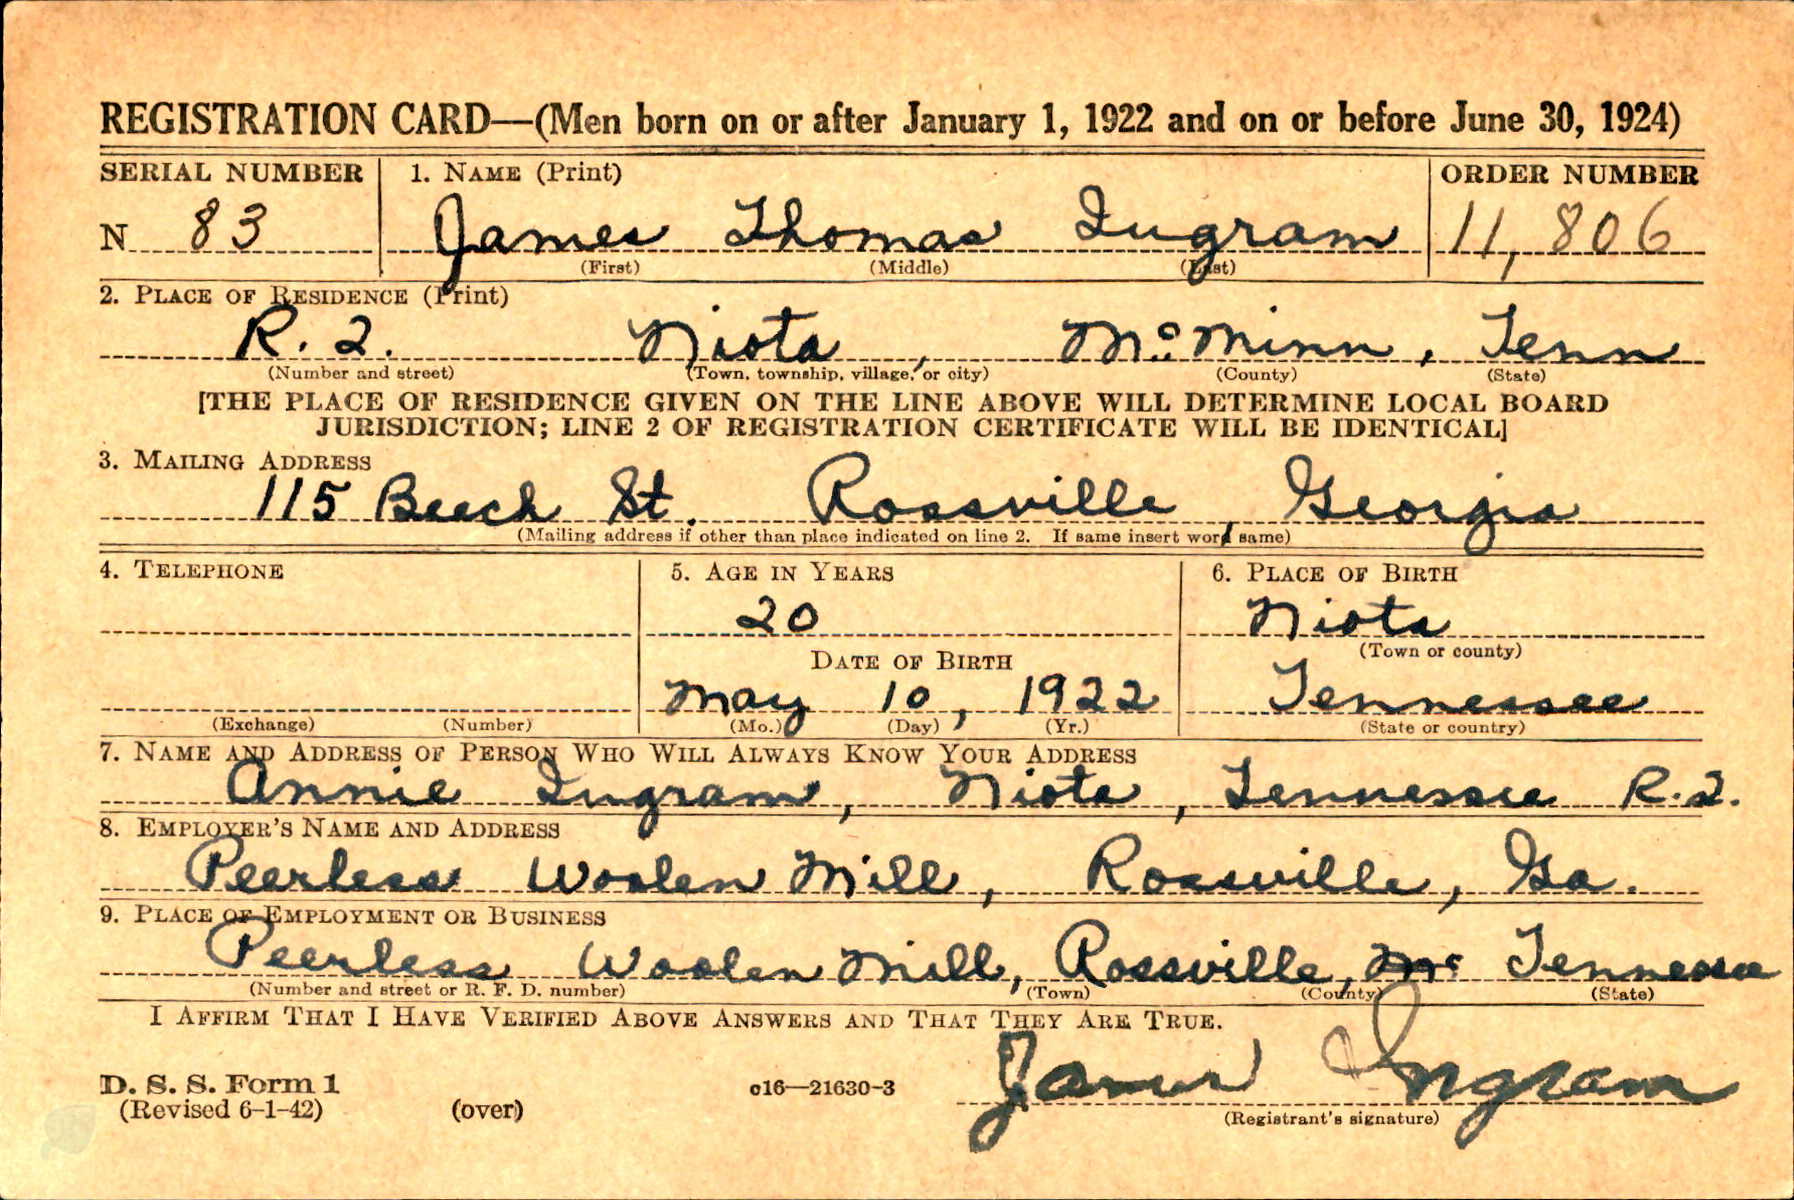 REGISTRATION CARD—(Men born on or after January 1, 1922 and on or before June 30, 1924)
SERIAL NUMBER 1. NAME (Print) ORDER NUMBER
N 83 James Thomas Ingram 11,806
(First) (Middle) (Last)
2. PLACE OF RESIDENCE (Print)
R. 2. Niota, McMinn, Tenn
(Number and street) (Town, township, village, or city) (County) (State)
[THE PLACE OF RESIDENCE GIVEN ON THE LINE ABOVE WILL DETERMINE LOCAL BOARD
JURISDICTION; LINE 2 OF REGISTRATION CERTIFICATE WILL BE IDENTICAL]
3. MAILING ADDRESS
115 Beech St. Rossville, Georgia
(Mailing address if other than place indicated on line 2. If same insert word same)
4. TELEPHONE 5. AGE IN YEARS 6. PLACE OF BIRTH
20 Niota
(Town or county)
DATE OF BIRTH
May 10, 1922 Tennessee
(Exchange) (Number) (Mo.) (Day) (Yr.) (State or country)
7. NAME AND ADDRESS OF PERSON WHO WILL ALWAYS KNOW YOUR ADDRESS
Annie Ingram, Niota, Tennessee R.2.
8. EMPLOYER'S NAME AND ADDRESS
Peerless Woolen Mill, Rossville, Ga.
9. PLACE OF EMPLOYMENT OR BUSINESS
Peerless Woolen Mill, Rossville, Mc Tennessee
(Number and street or R. F. D. number) (Town) (County) (State)
I AFFIRM THAT I HAVE VERIFIED ABOVE ANSWERS AND THAT THEY ARE TRUE.
D. S. S. Form 1 c16—21630-3 James Ingram
(Revised 6-1-42) (over) (Registrant's signature)